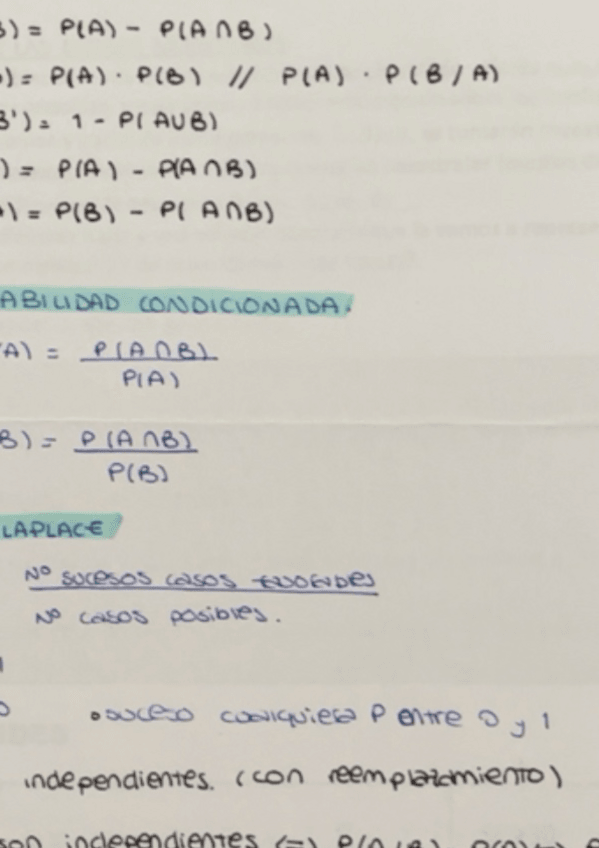 B) = P(A) - P(A∩B)
) = P(A) · P(B) // P(A) · P(B/A)
B') = 1 - P(A∪B)
) = P(A) - P(A∩B)
A) = P(B) - P(A∩B)
ABILIDAD CONDICIONADA.
/A) = P(A∩B)
P(A)
B) = P(A∩B)
P(B)
LAPLACE
Nº sucesos casos favorables
Nº casos posibles.
• suceso cualquiera P entre 0 y 1
independientes. (con reemplazamiento)
son independientes (=)